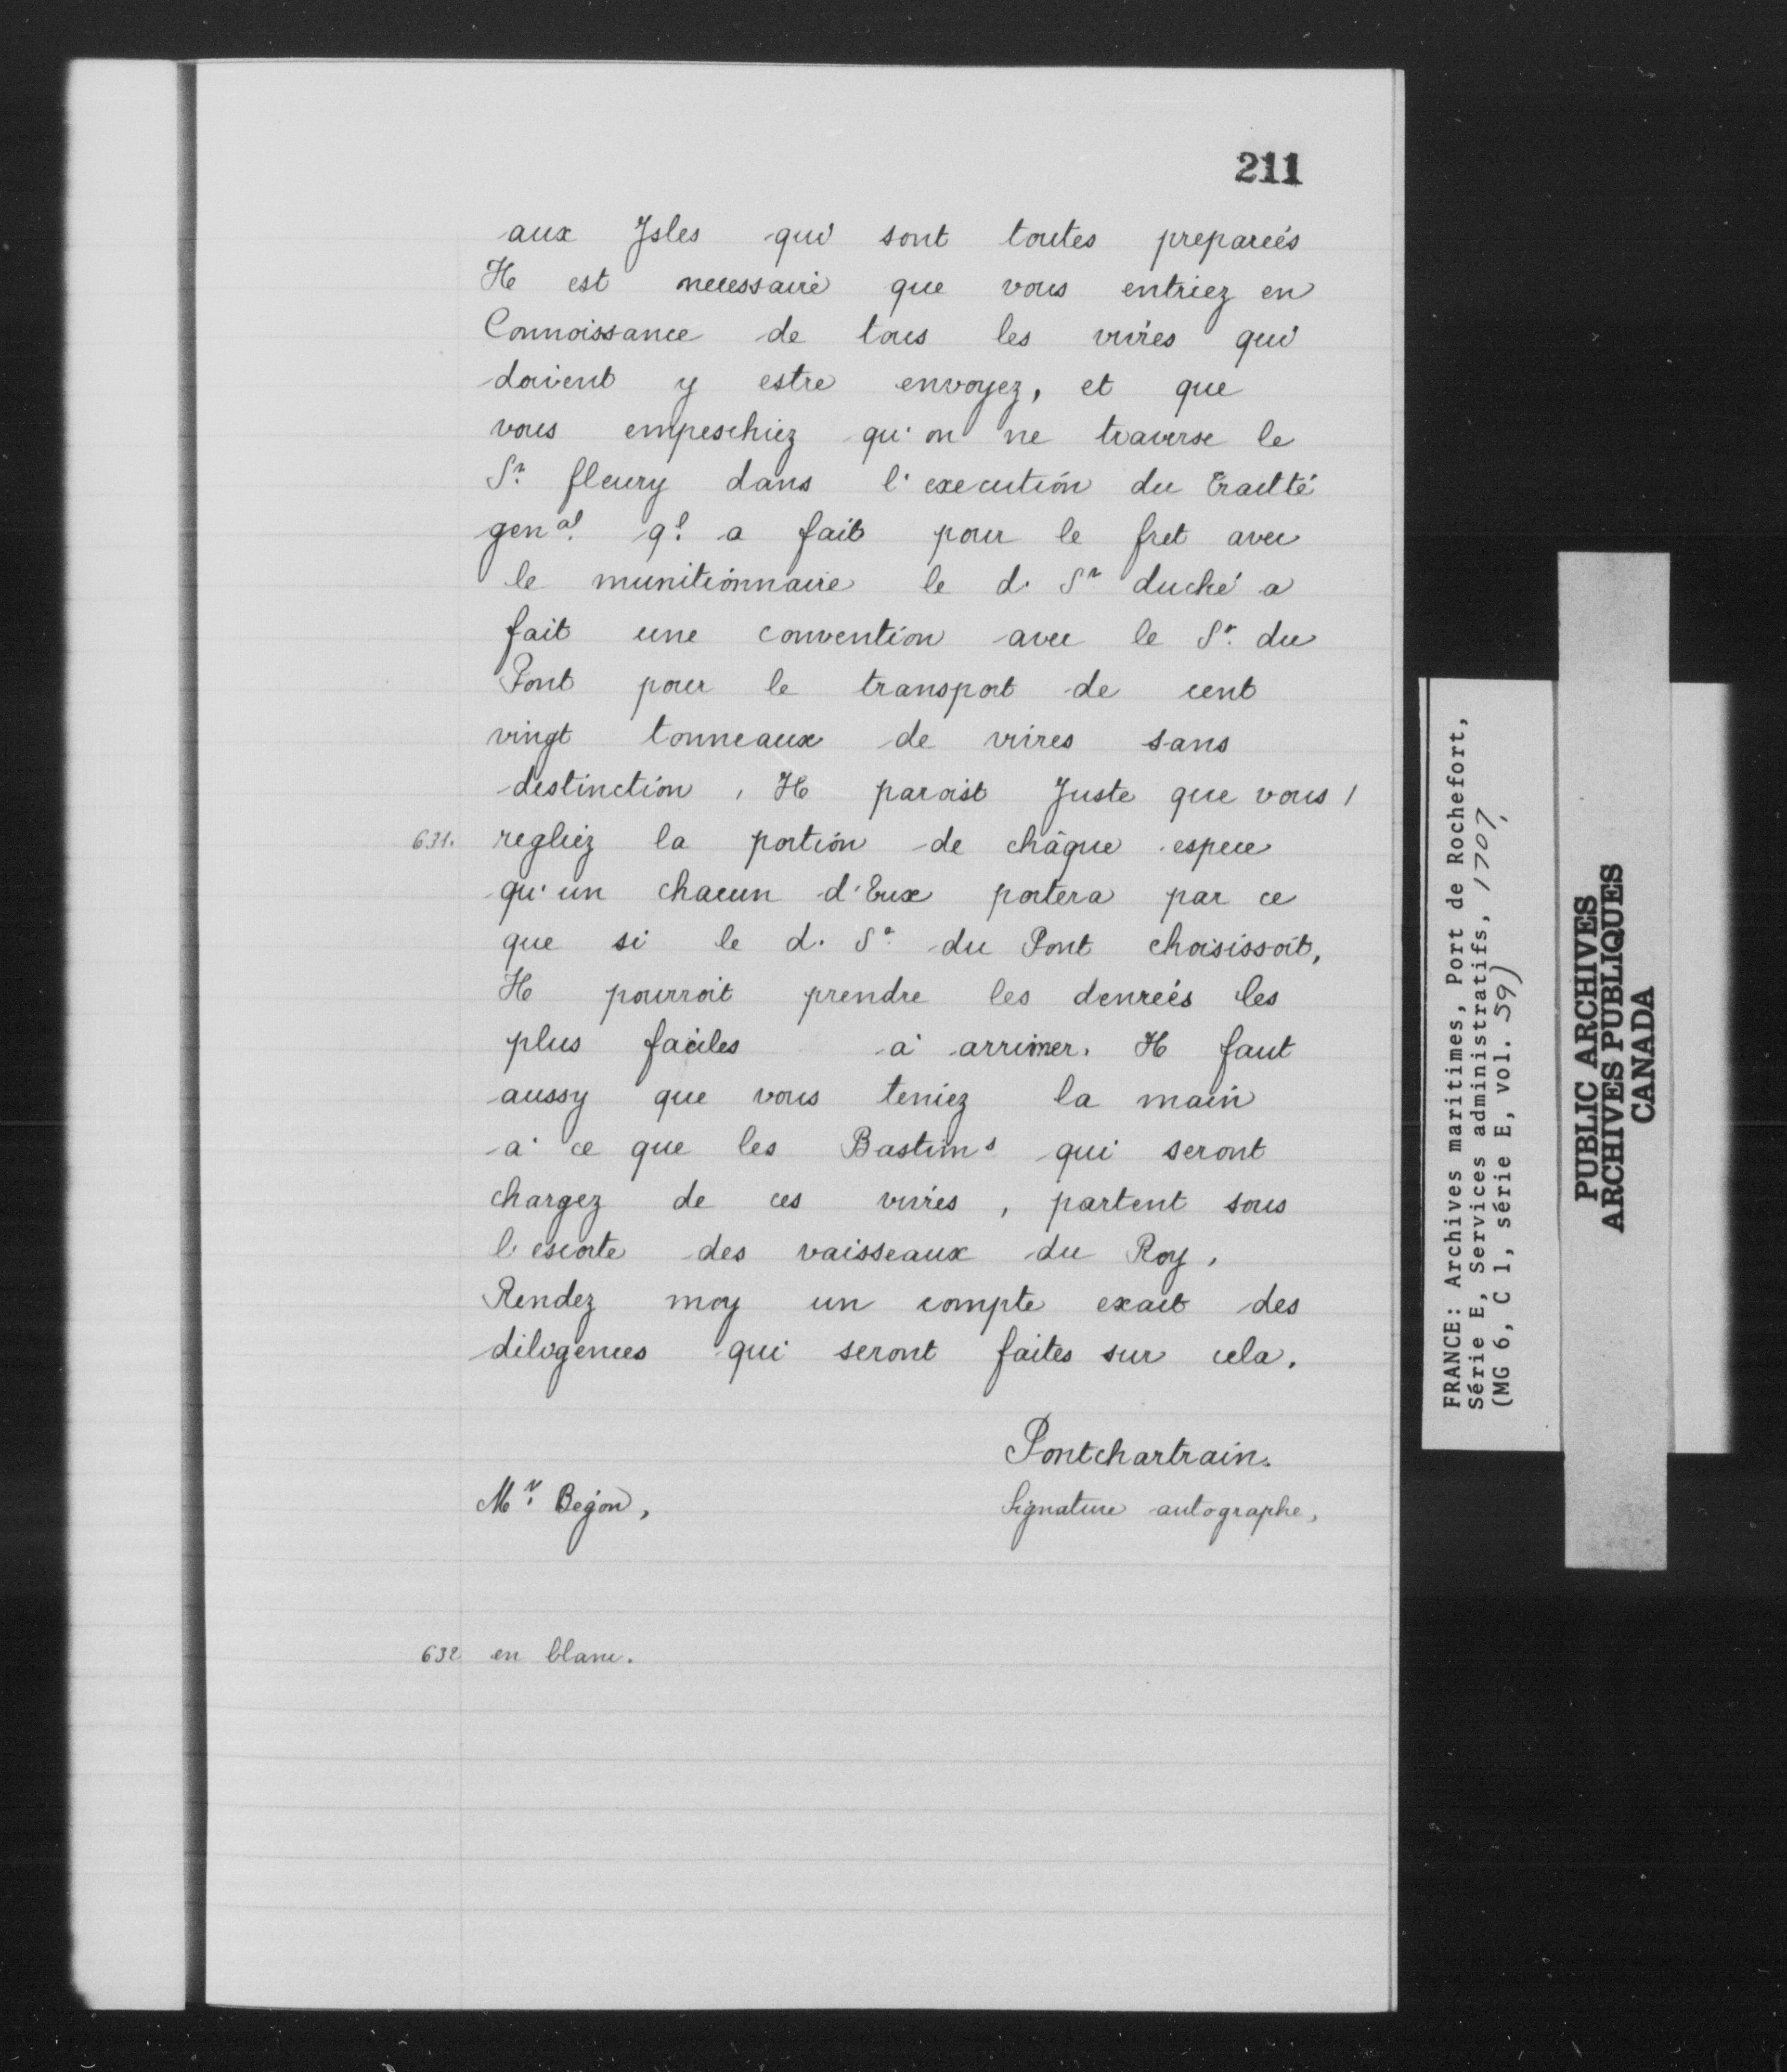 211
aux Isles qui sont toutes preparées
Il est necessaire que vous entriez en
Connoissance de tous les vivres qui
doivent y estre envoyez, et que
vous empeschiez qu'on ne traverse le
Sr. fleury dans l'execution du Traitté
genal. ql. a fait pour le fret avec
le munitionnaire le d. Sr duché a
fait une convention avec le Sr. du
Pont pour le transport de cent
vingt tonneaux de vivres sans
distinction, Il paroist Juste que vous /
631. regliez la portion de châque espece
qu'un chacun d'Eux portera par ce
que si le d. Sr. du Pont choisissoit,
Il pourroit prendre les denreés les
plus faciles a arrimer. Il faut
aussy que vous teniez la main
a ce que les Bastims qui seront
chargez de ces vivres, partent sous
l'escorte des vaisseaux du Roy.
Rendez moy un compte exact des
diligences qui seront faites sur cela.
Pontchartrain.
Mr. Begon,
Signature autographe,
632 en blanc.
FRANCE: Archives maritimes, Port de Rochefort,
Série E, Services administratifs, 1707,
(MG 6, C 1, série E, vol. 59)
PUBLIC ARCHIVES
ARCHIVES PUBLIQUES
CANADA